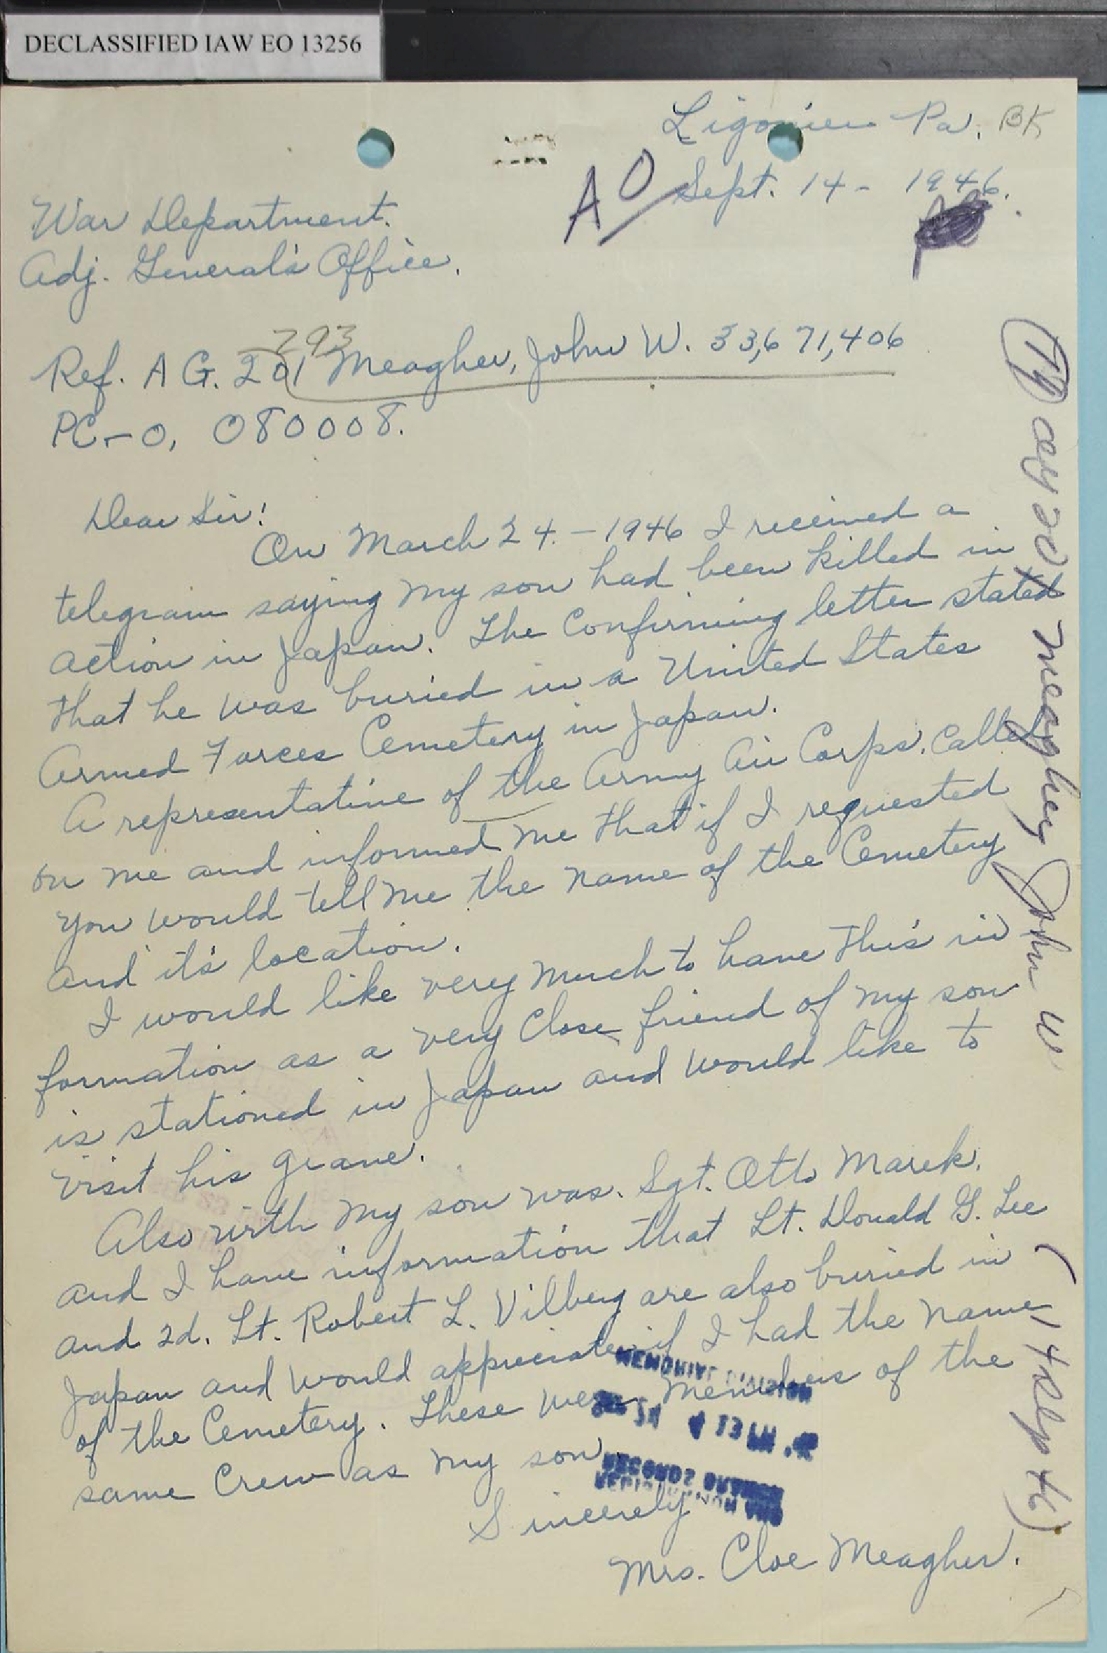 DECLASSIFIED IAW EO 13256
Ligonier Pa. BK
AO Sept. 14 - 1946.
War Department.
Adj. General's Office.
293
Ref. A G. 201 Meagher, John W. 33,671,406
PC-O, 080008.
Dear Sir!
On March 24. - 1946 I received a
telegram saying my son had been killed in
action in Japan. The Confirming letter stated
that he was buried in a United States
Armed Forces Cemetery in Japan.
A representative of the Army Air Corps. called
on me and informed me that if I requested
you would tell me the name of the Cemetery
and it's location.
I would like very much to have this in
formation as a very close friend of my son
is stationed in Japan and would like to
visit his grave.
Also with my son was. Sgt. Otto Marek.
and I have information that Lt. Donald G. Lee
and 2d. Lt. Robert L. Vilberg are also buried in
Japan and would appreciate if I had the name
of the Cemetery. These were members of the
same Crew as my son.
Sincerely
Mrs. Cloe Meagher.
MEMORIAL DIVISION
4 13 PM '46
RECORDS BRANCH
Meagher John W
(14 Sep 46)